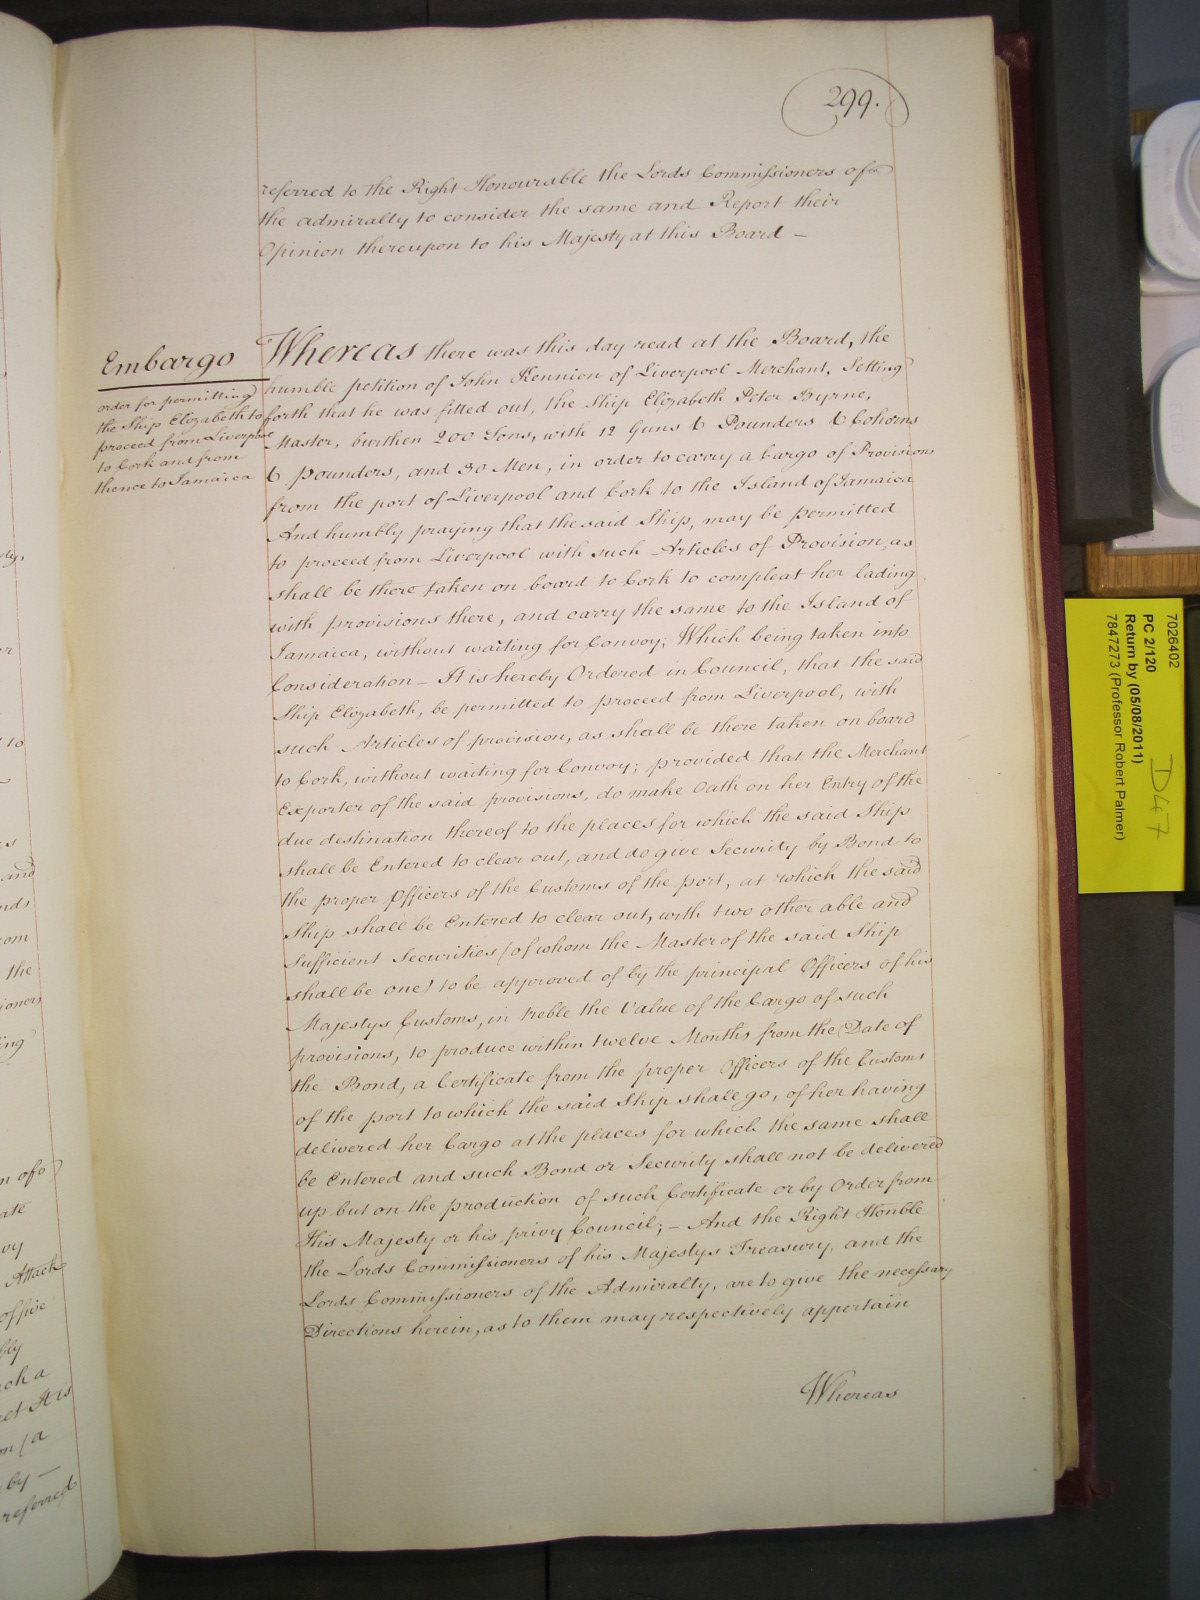 299.
referred to the Right Honourable the Lords Commissioners of
the admiralty to consider the same and Report their
Opinion thereupon to his Majesty at this Board –
Embargo
order for permitting
the Ship Elizabeth to
proceed from Liverpool
to Cork and from
thence to Jamaica
Whereas there was this day read at the Board, the
humble petition of John Kennion of Liverpool Merchant, Setting
forth that he was fitted out, the Ship Elizabeth Peter Byrne,
Master, burthen 200 Tons, with 12 Guns 6 Pounders 6 Cohorns
6 pounders, and 30 Men, in order to carry a Cargo of Provisions
from the port of Liverpool and Cork to the Island of Jamaica
And humbly praying that the said Ship, may be permitted
to proceed from Liverpool with such Articles of Provision, as
shall be there taken on board to Cork to compleat her lading
with provisions there, and carry the same to the Island of
Jamaica, without waiting for Convoy; Which being taken into
Consideration – It is hereby Ordered in Council, that the said
Ship Elizabeth, be permitted to proceed from Liverpool, with
such Articles of provision, as shall be there taken on board
to Cork, without waiting for Convoy; provided that the Merchant
Exporter of the said provisions, do make Oath on her Entry of the
due destination thereof to the places for which the said Ship
shall be Entered to clear out, and do give Security by Bond to
the proper Officers of the Customs of the port, at which the said
Ship shall be Entered to clear out, with two other able and
sufficient Securities (of whom the Master of the said Ship
shall be one) to be approved of by the principal Officers of his
Majestys Customs, in treble the Value of the Cargo of such
provisions, to produce within twelve Months from the Date of
the Bond, a Certificate from the proper Officers of the Customs
of the port to which the said Ship shall go, of her having
delivered her Cargo at the places for which the same shall
be Entered and such Bond or Security shall not be delivered
up but on the production of such Certificate or by Order from
His Majesty or his privy Council; – And the Right Honble
the Lords Commissioners of his Majestys Treasury, and the
Lords Commissioners of the Admiralty, are to give the necessary
Directions herein, as to them may respectively appertain
Whereas
7026402
PC 2/120
Return by (05/08/2011)
7847273 (Professor Robert Palmer)
D47
and
the
Attack
ch a
by –
referred